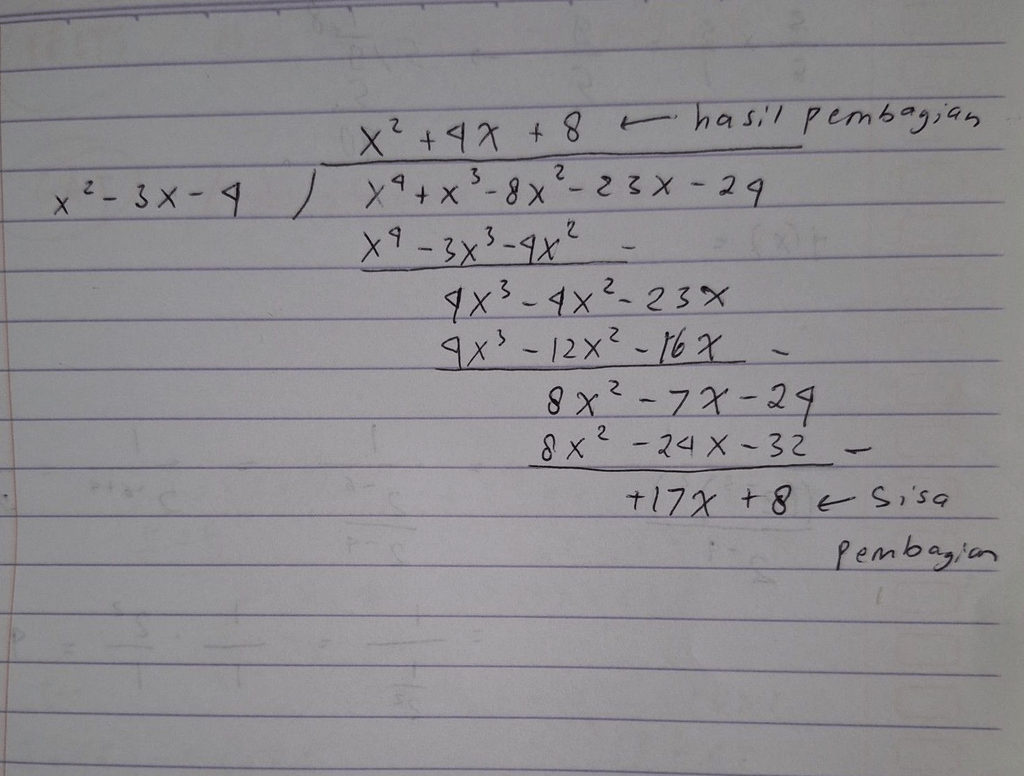 x² + 4x + 8 ← hasil pembagian
x² - 3x - 4 ) x⁴ + x³ - 8x² - 23x - 24
x⁴ - 3x³ - 4x² -
4x³ - 4x² - 23x
4x³ - 12x² - 16x -
8x² - 7x - 24
8x² - 24x - 32 -
+17x + 8 ← Sisa
pembagian